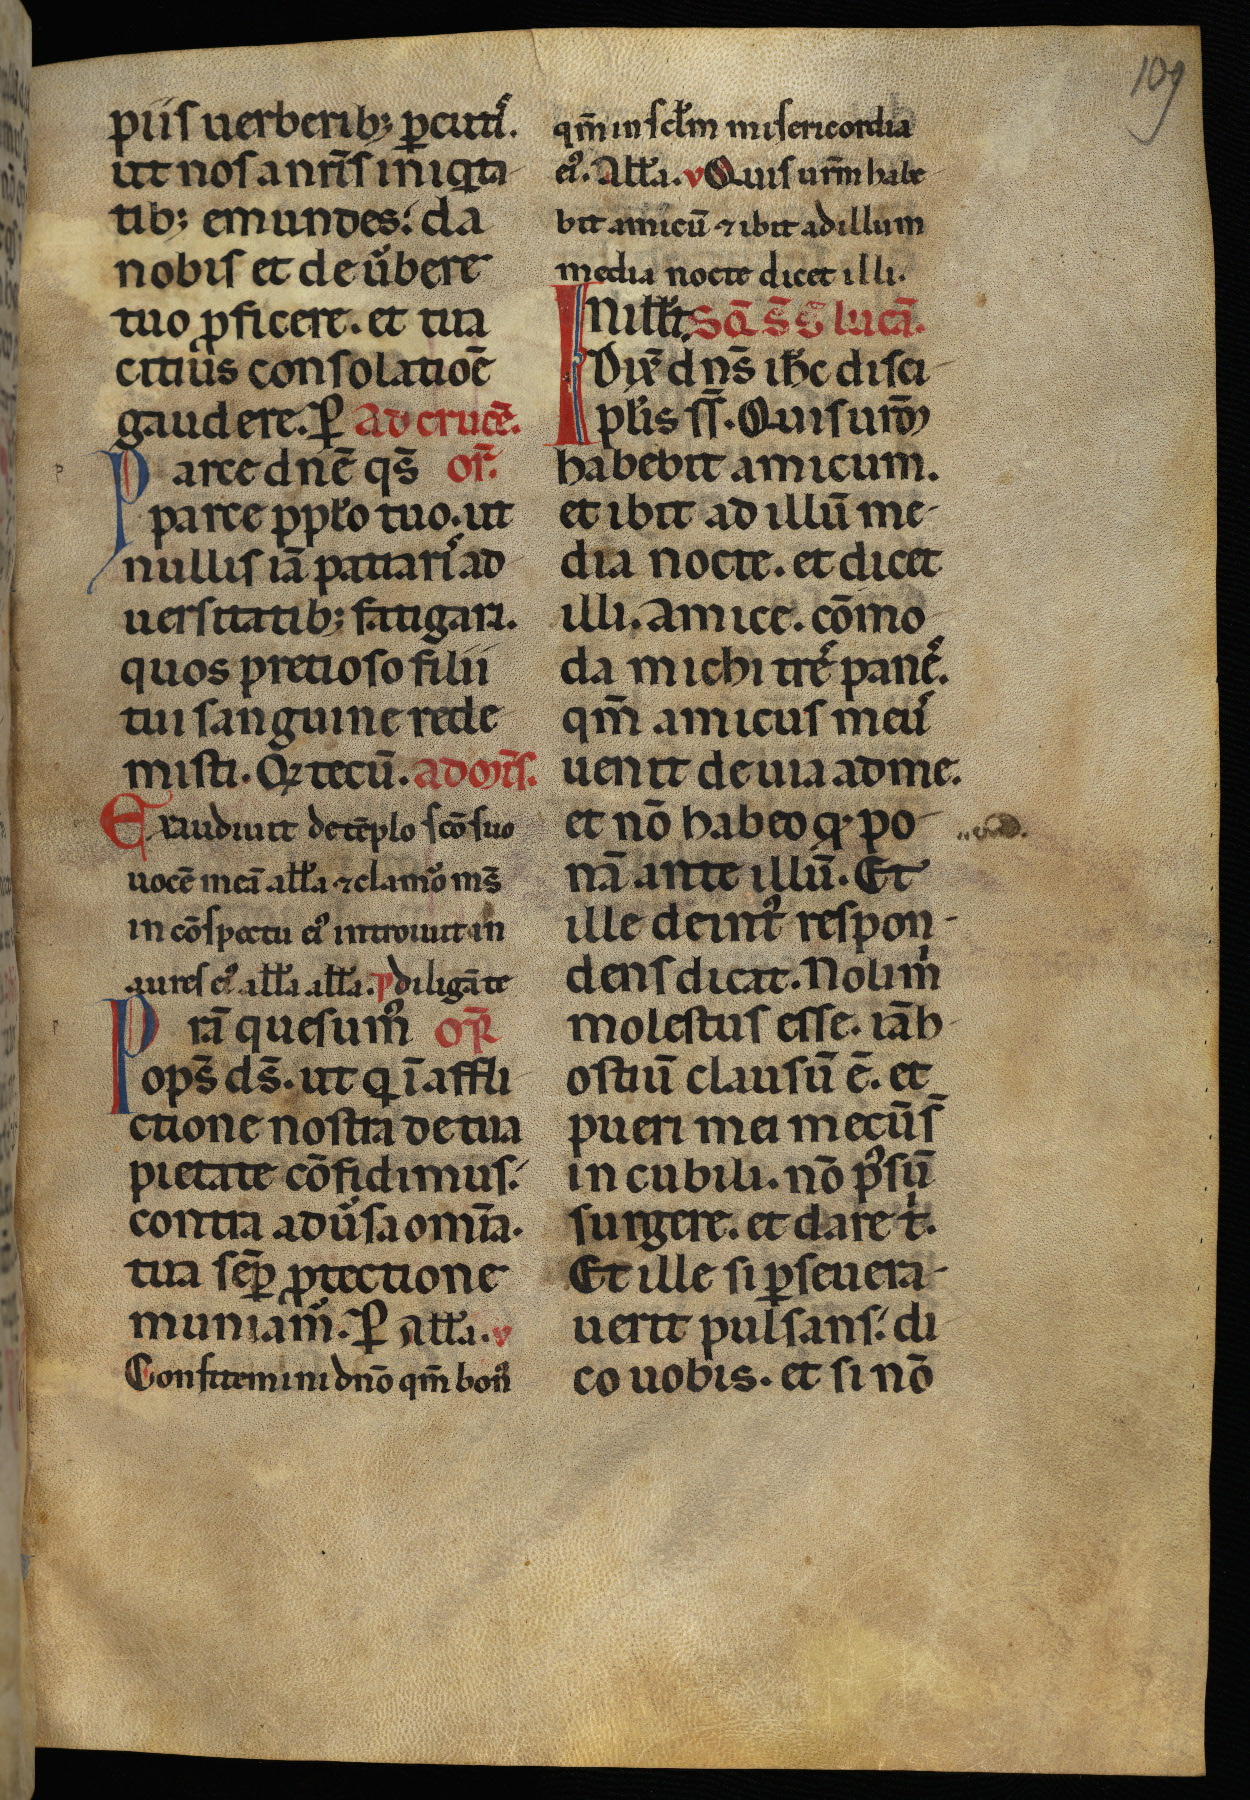 109
piis uerberib; ꝑcuti᷒.
ut nos a nr̄is iniq̇ta-
tib; emundes: da
nobis et de ub̾ere
tuo ꝓficere. et tua
citius consolatiōe
gaudere. Ꝑ Ad crucē.
Parce dn̄e qs̄ or̄.
parce ppl̄o tuo. ut
nullis iā pattari᷒ ad
uersitatib; fatigari.
quos pretioso filii
tui sanguine rede
misti. Qꝛ tecū. ad oꝛs̄.
Exaudiuit de tēplo scō suo
uocē meā all̄a ⁊ clamo᷒ ms̄
in cōspectu ei᷒ introiuit in
aures ei᷒ all̄a all̄a. p diligā te
P rā quesum᷒ oꝛ̄
op̄s ds̄. ut q̇ ī affli-
ctione nostra de tua
pietate cōfidimus:
contra adūsa omīa.
tua sēꝑ ꝓtectione
muniam᷒. Ꝑ All̄a. v
Confitemini dn̄o qm̄ bon᷒
qm̄ in scl̄m misericordia
ei᷒. All̄a. v Quis ur̄m habe-
bit amicū ⁊ ibit ad illum
media nocte dicet illi.
In ill̄ t̄. Sq̄ s̄ ē lucā.
Dix̄ dn̄s ih̄c disci-
pl̄is ss̄. Quis ur̄m
habebit amicum.
et ibit ad illū me-
dia nocte. et dicet
illi. Amice. cōmo-
da michi tre᷒ pane᷒.
qm̄ amicus meu᷒
uenit de uia ad me.
et nō habeo q̇ po-
nā ante illū. Et
ille deint᷒ respon-
dens dicat. Noli m̄
molestus esse. iā h-
ostiū clausū ē. et
pueri mei mecū s̄
in cubili. nō p᷒sū
surgere. et dare t̄.
Et ille si ꝑseuera-
uerit pulsans: di-
co uobis. et si nō